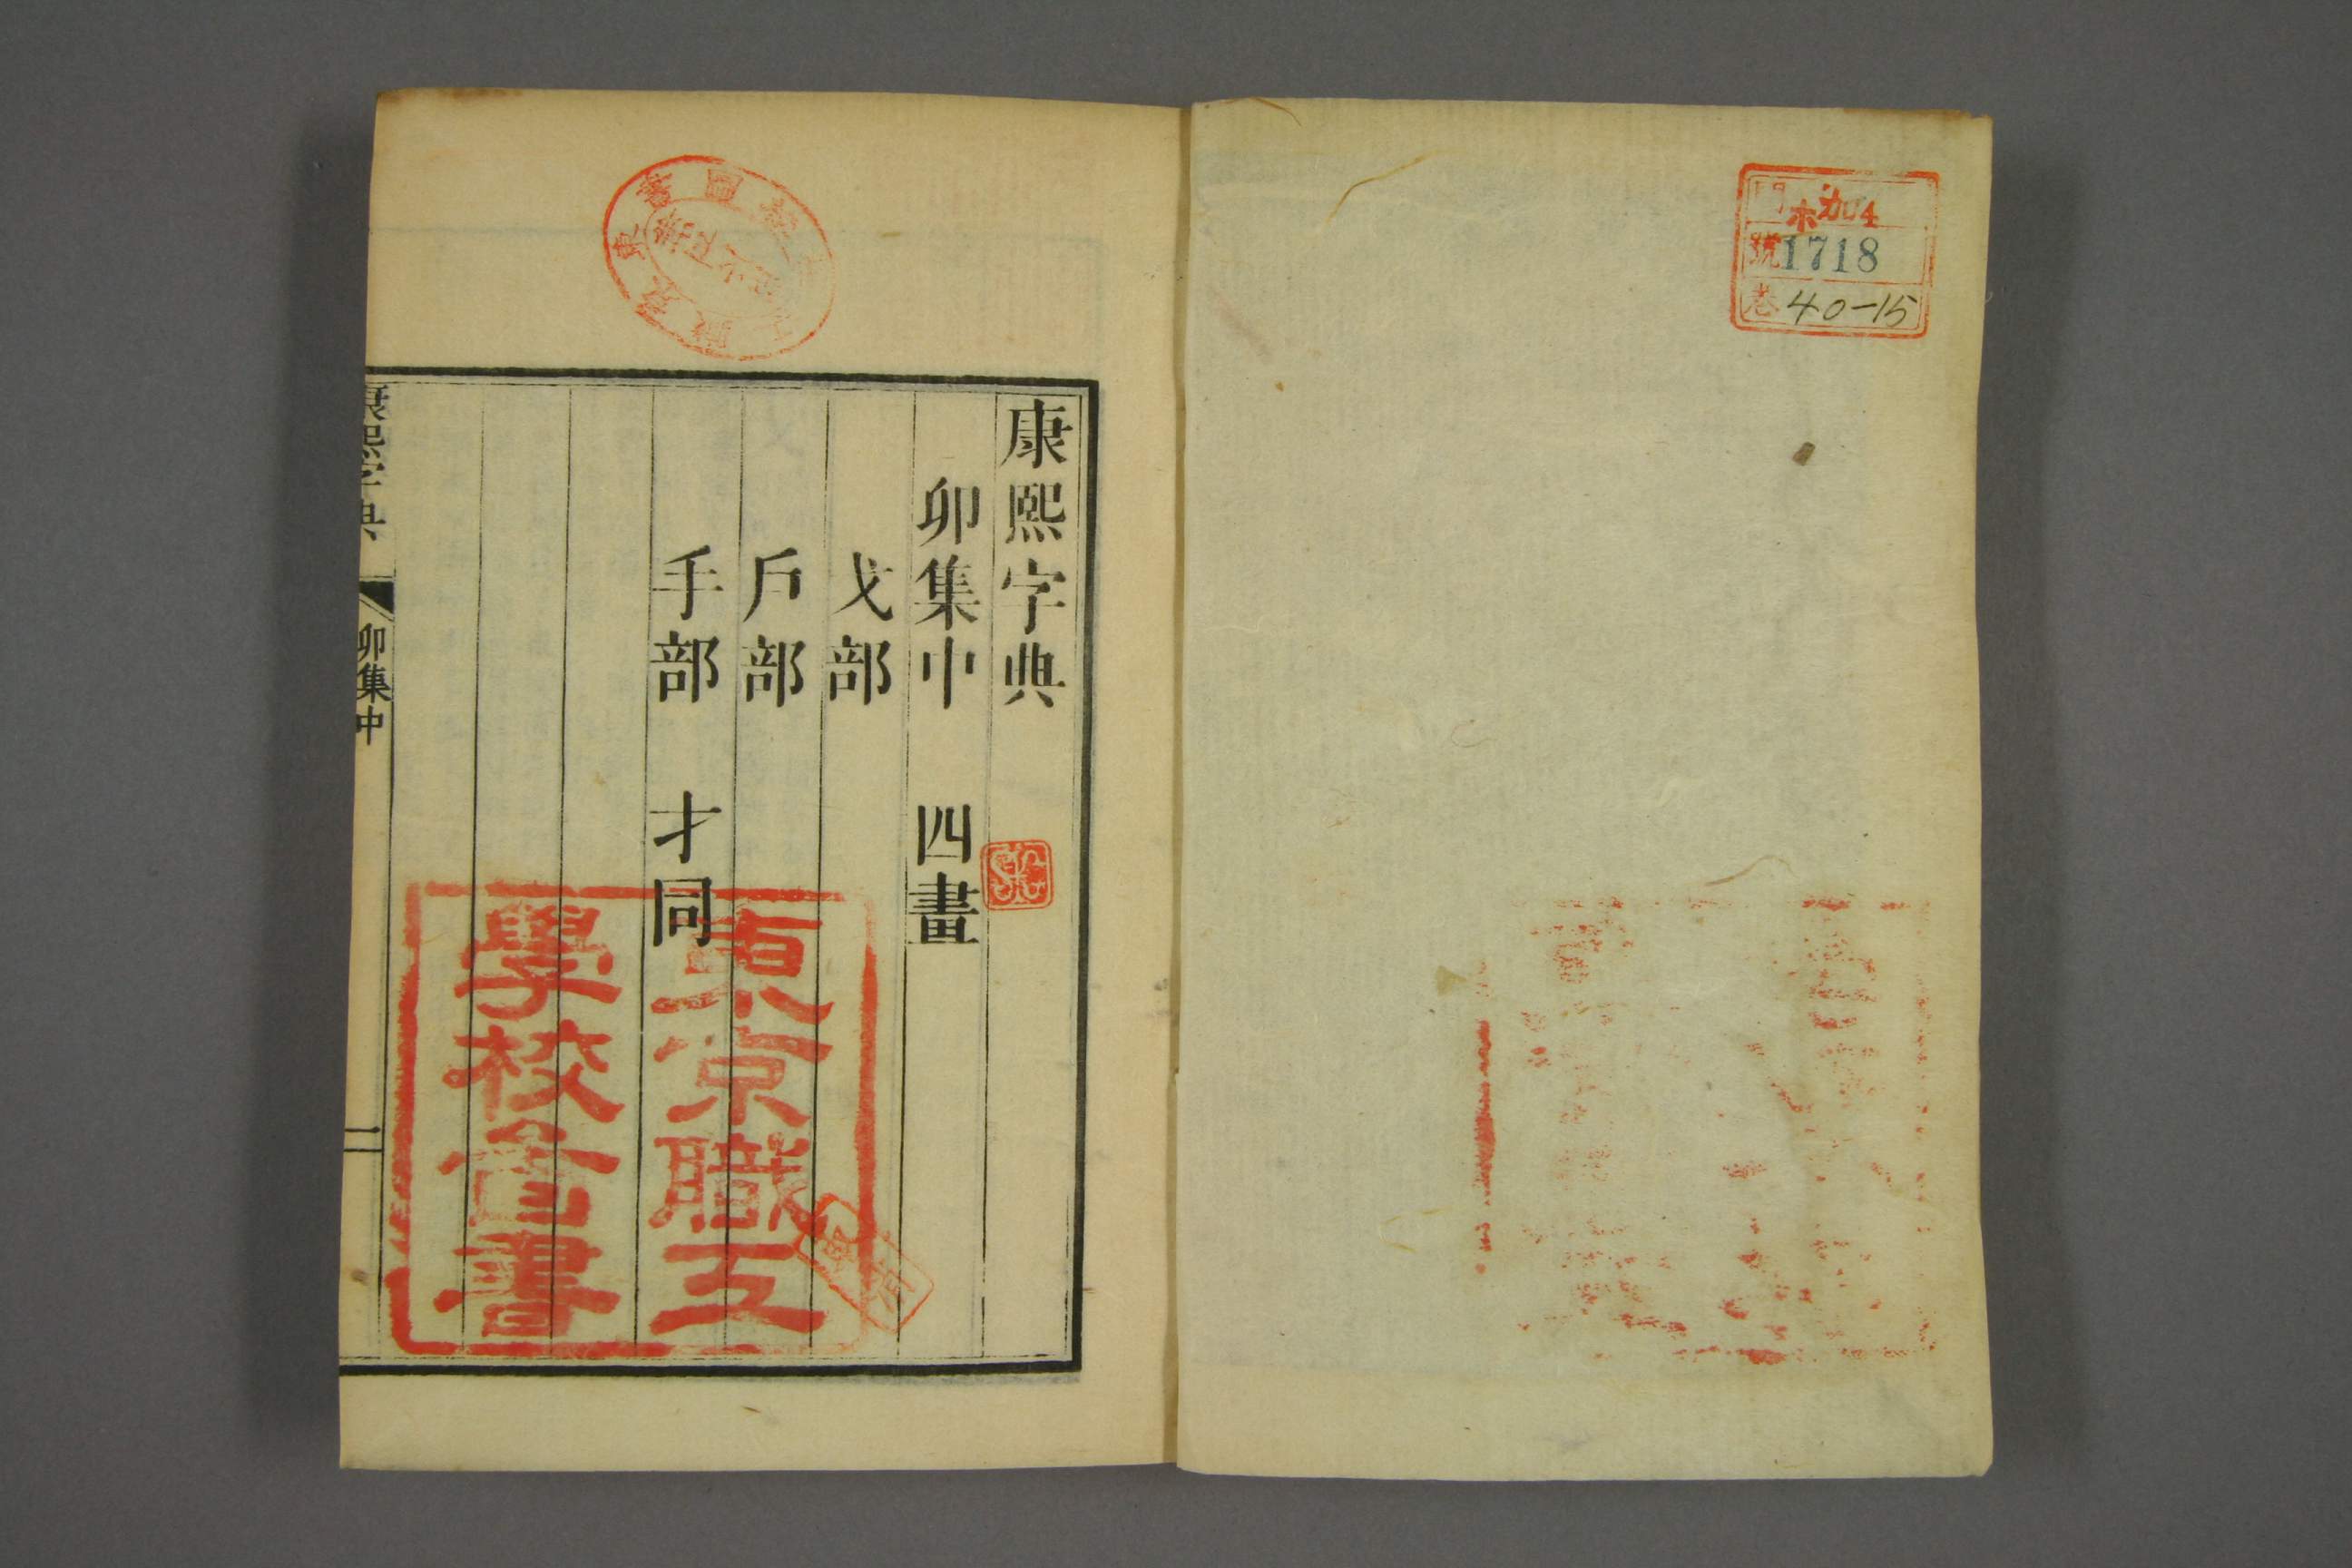 門 ホ 加4
號 1718
卷 40-15
康熙字典
卯集中 四畫
戈部
戶部
手部 才同
東京職工
學校圖書
康熙字典
卯集中
一